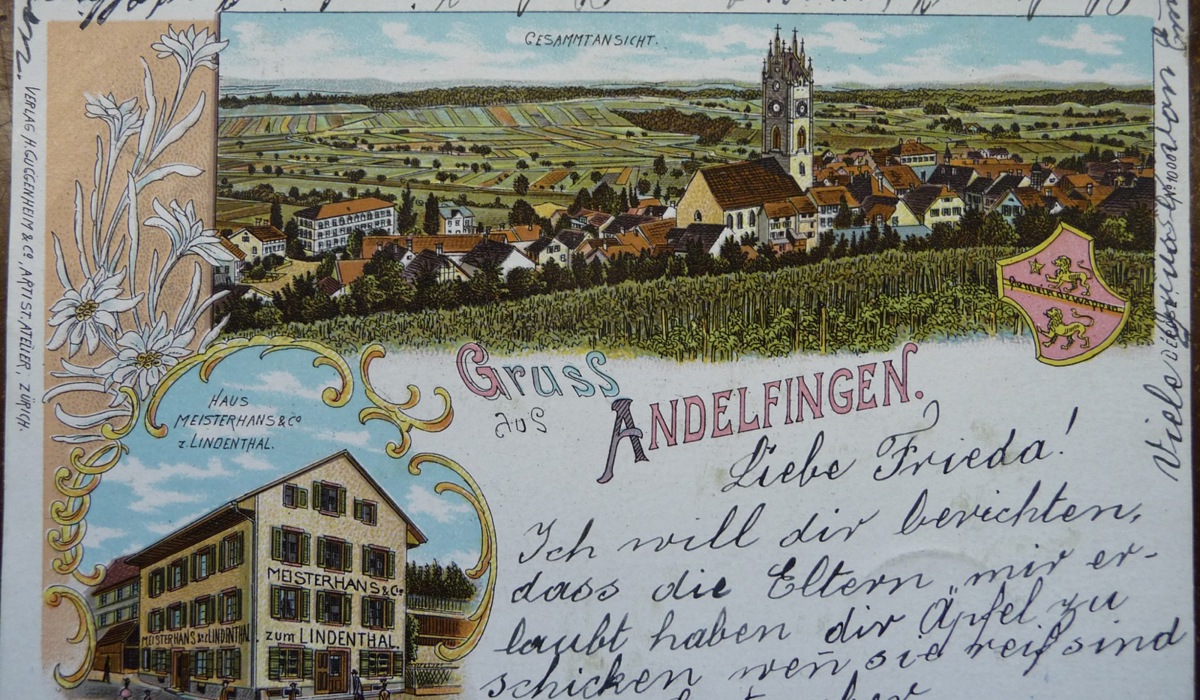 GESAMMTANSICHT.
VERLAG H. GUGGENHEIM & Co, ARTIST. ATELIER, ZÜRICH.
Gemeindewappen
HAUS
MEISTERHANS & Co
z. LINDENTHAL.
Gruss
aus
ANDELFINGEN.
MEISTERHANS & Co
zum LINDENTHAL.
MEISTERHANS & Co z. LINDENTHAL
Liebe Frieda!
Ich will dir berichten,
dass die Eltern mir er-
laubt haben dir Äpfel zu
schicken wen̄ sie reif sind
aber
Viele Grüsse von